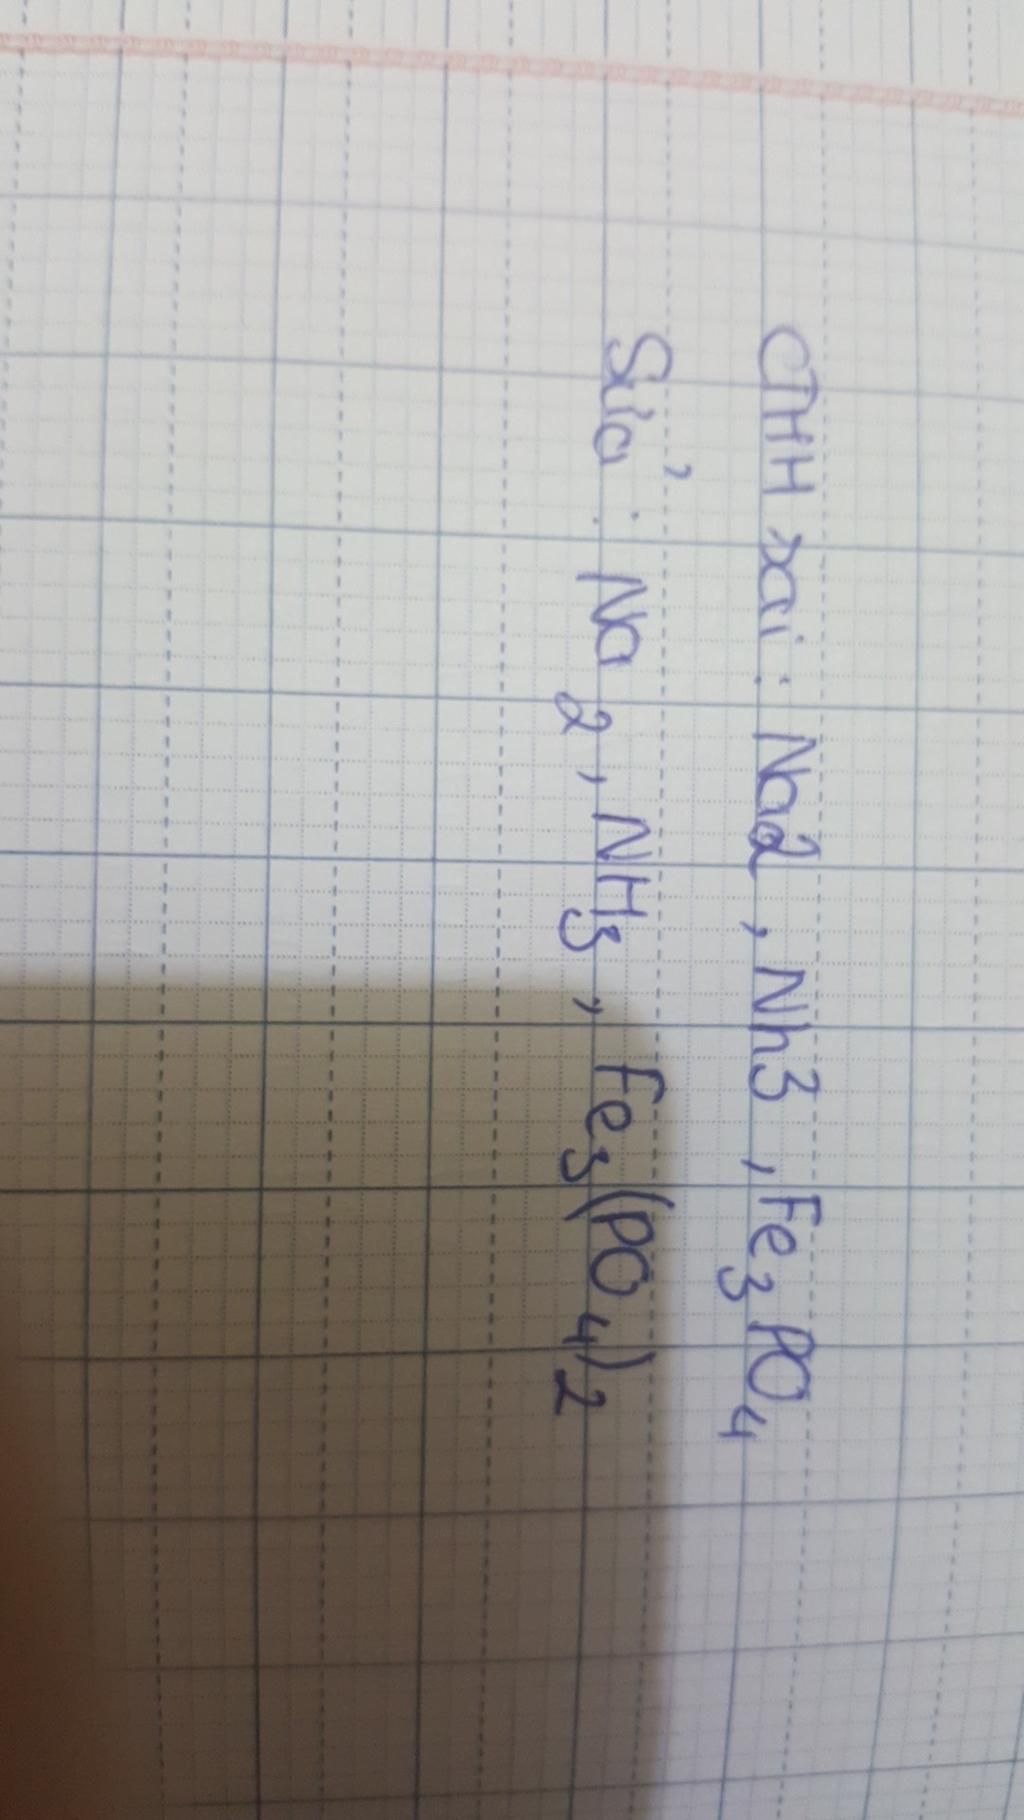 CTHH xai : Na2 , Nh3 , Fe₃PO₄
Sửa : Na₂ , NH₃ , Fe₃(PO₄)₂